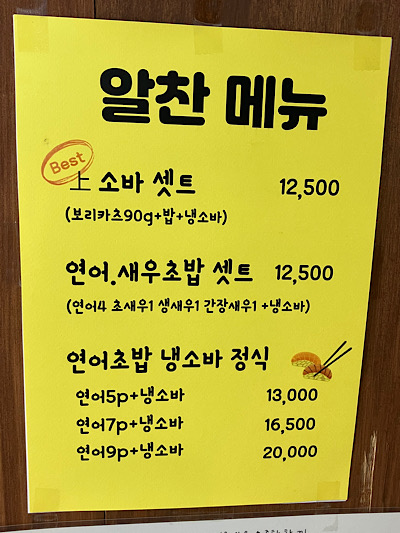 알찬 메뉴
Best
上 소바 셋트 12,500
(보리카츠90g+밥+냉소바)
연어.새우초밥 셋트 12,500
(연어4 초새우1 생새우1 간장새우1 +냉소바)
연어초밥 냉소바 정식
연어5p+냉소바 13,000
연어7p+냉소바 16,500
연어9p+냉소바 20,000